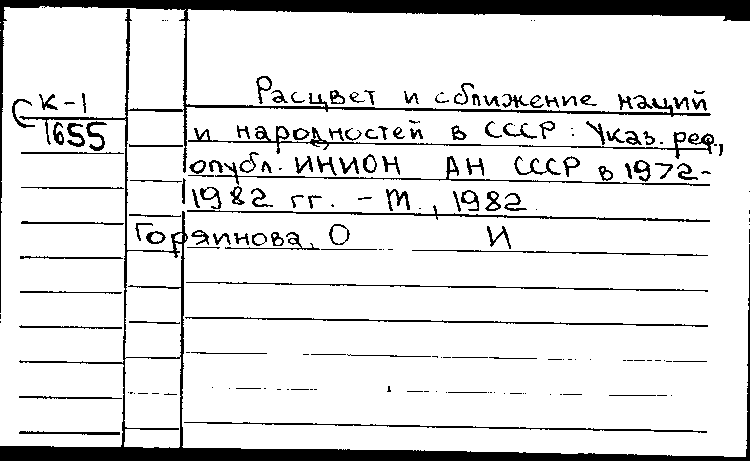 Расцвет и сближение наций
К-1
1655
и народностей в СССР: Указ. реф,
опубл. ИНИОН АН СССР в 1972-
1982 гг. - М., 1982
Горяинова, О И